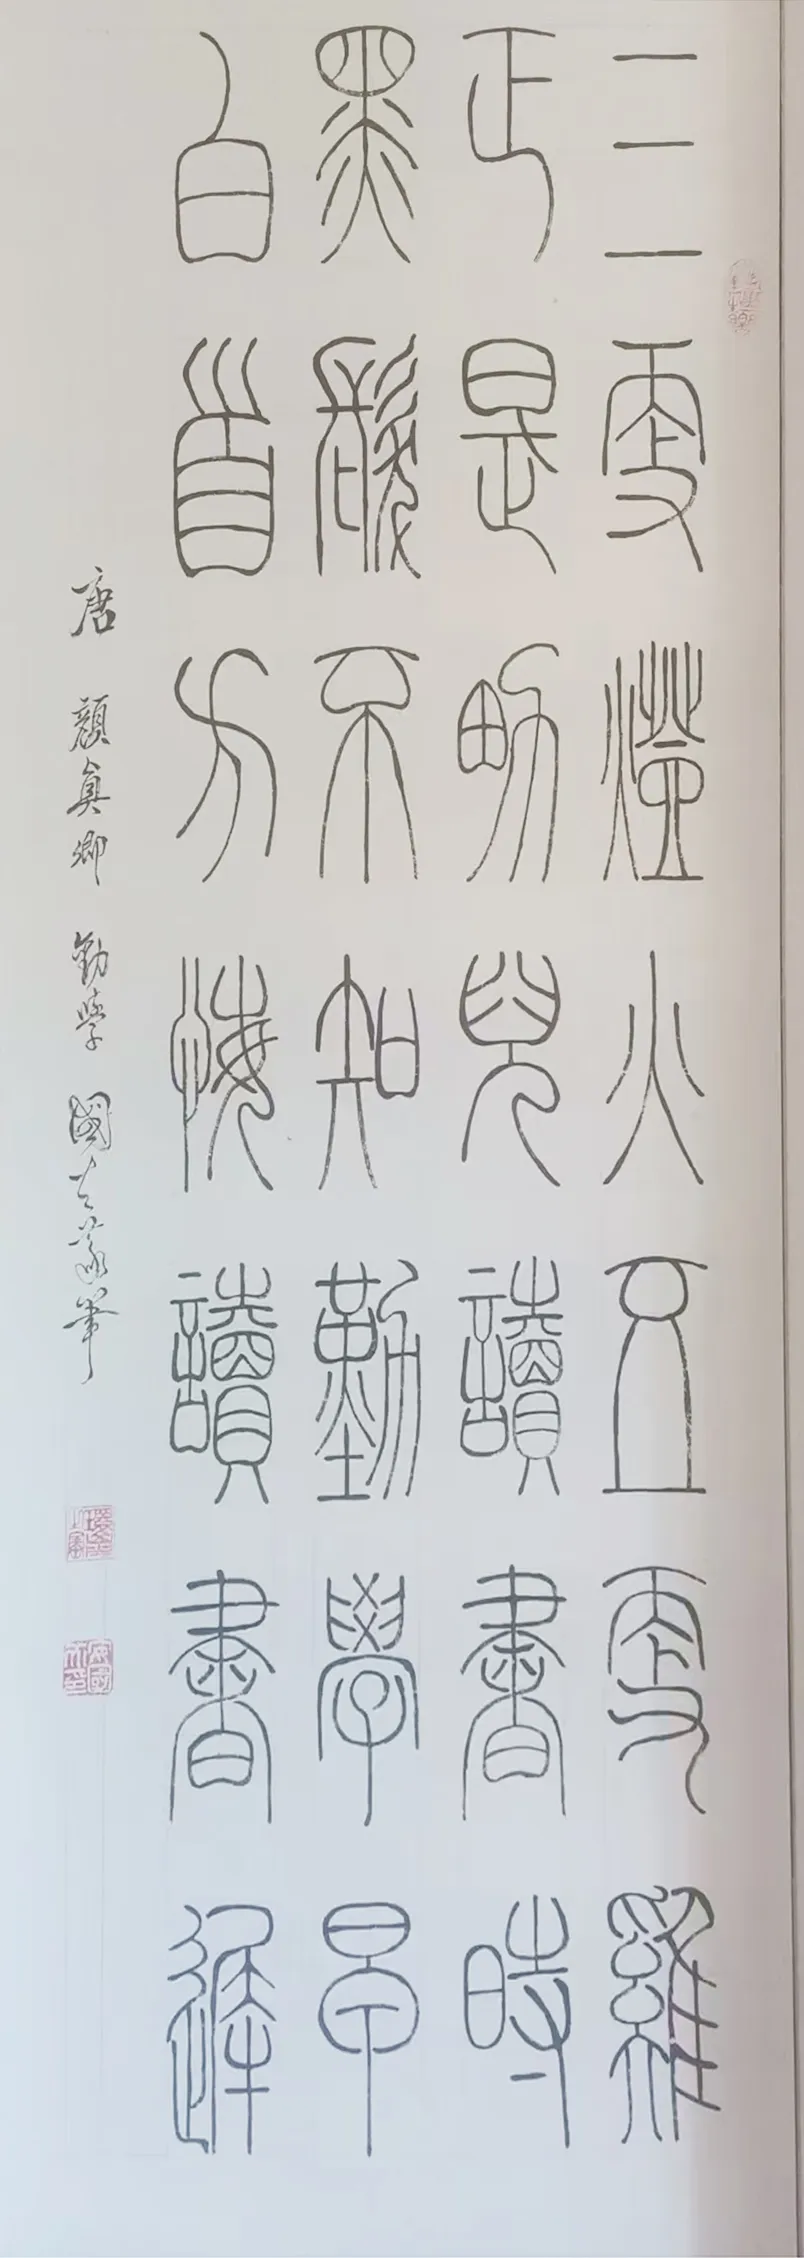 三更燈火五更雞
正是男兒讀書時
黑髮不知勤學早
白首方悔讀書遲
唐 顏真卿 勸學 國夫篆筆